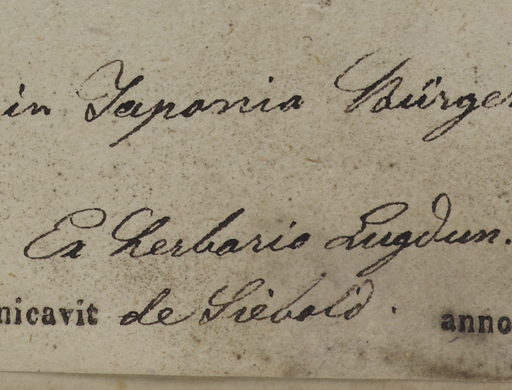 in Japonia Bürger
Ex herbario Lugdun.
nicavit de Siebold. anno